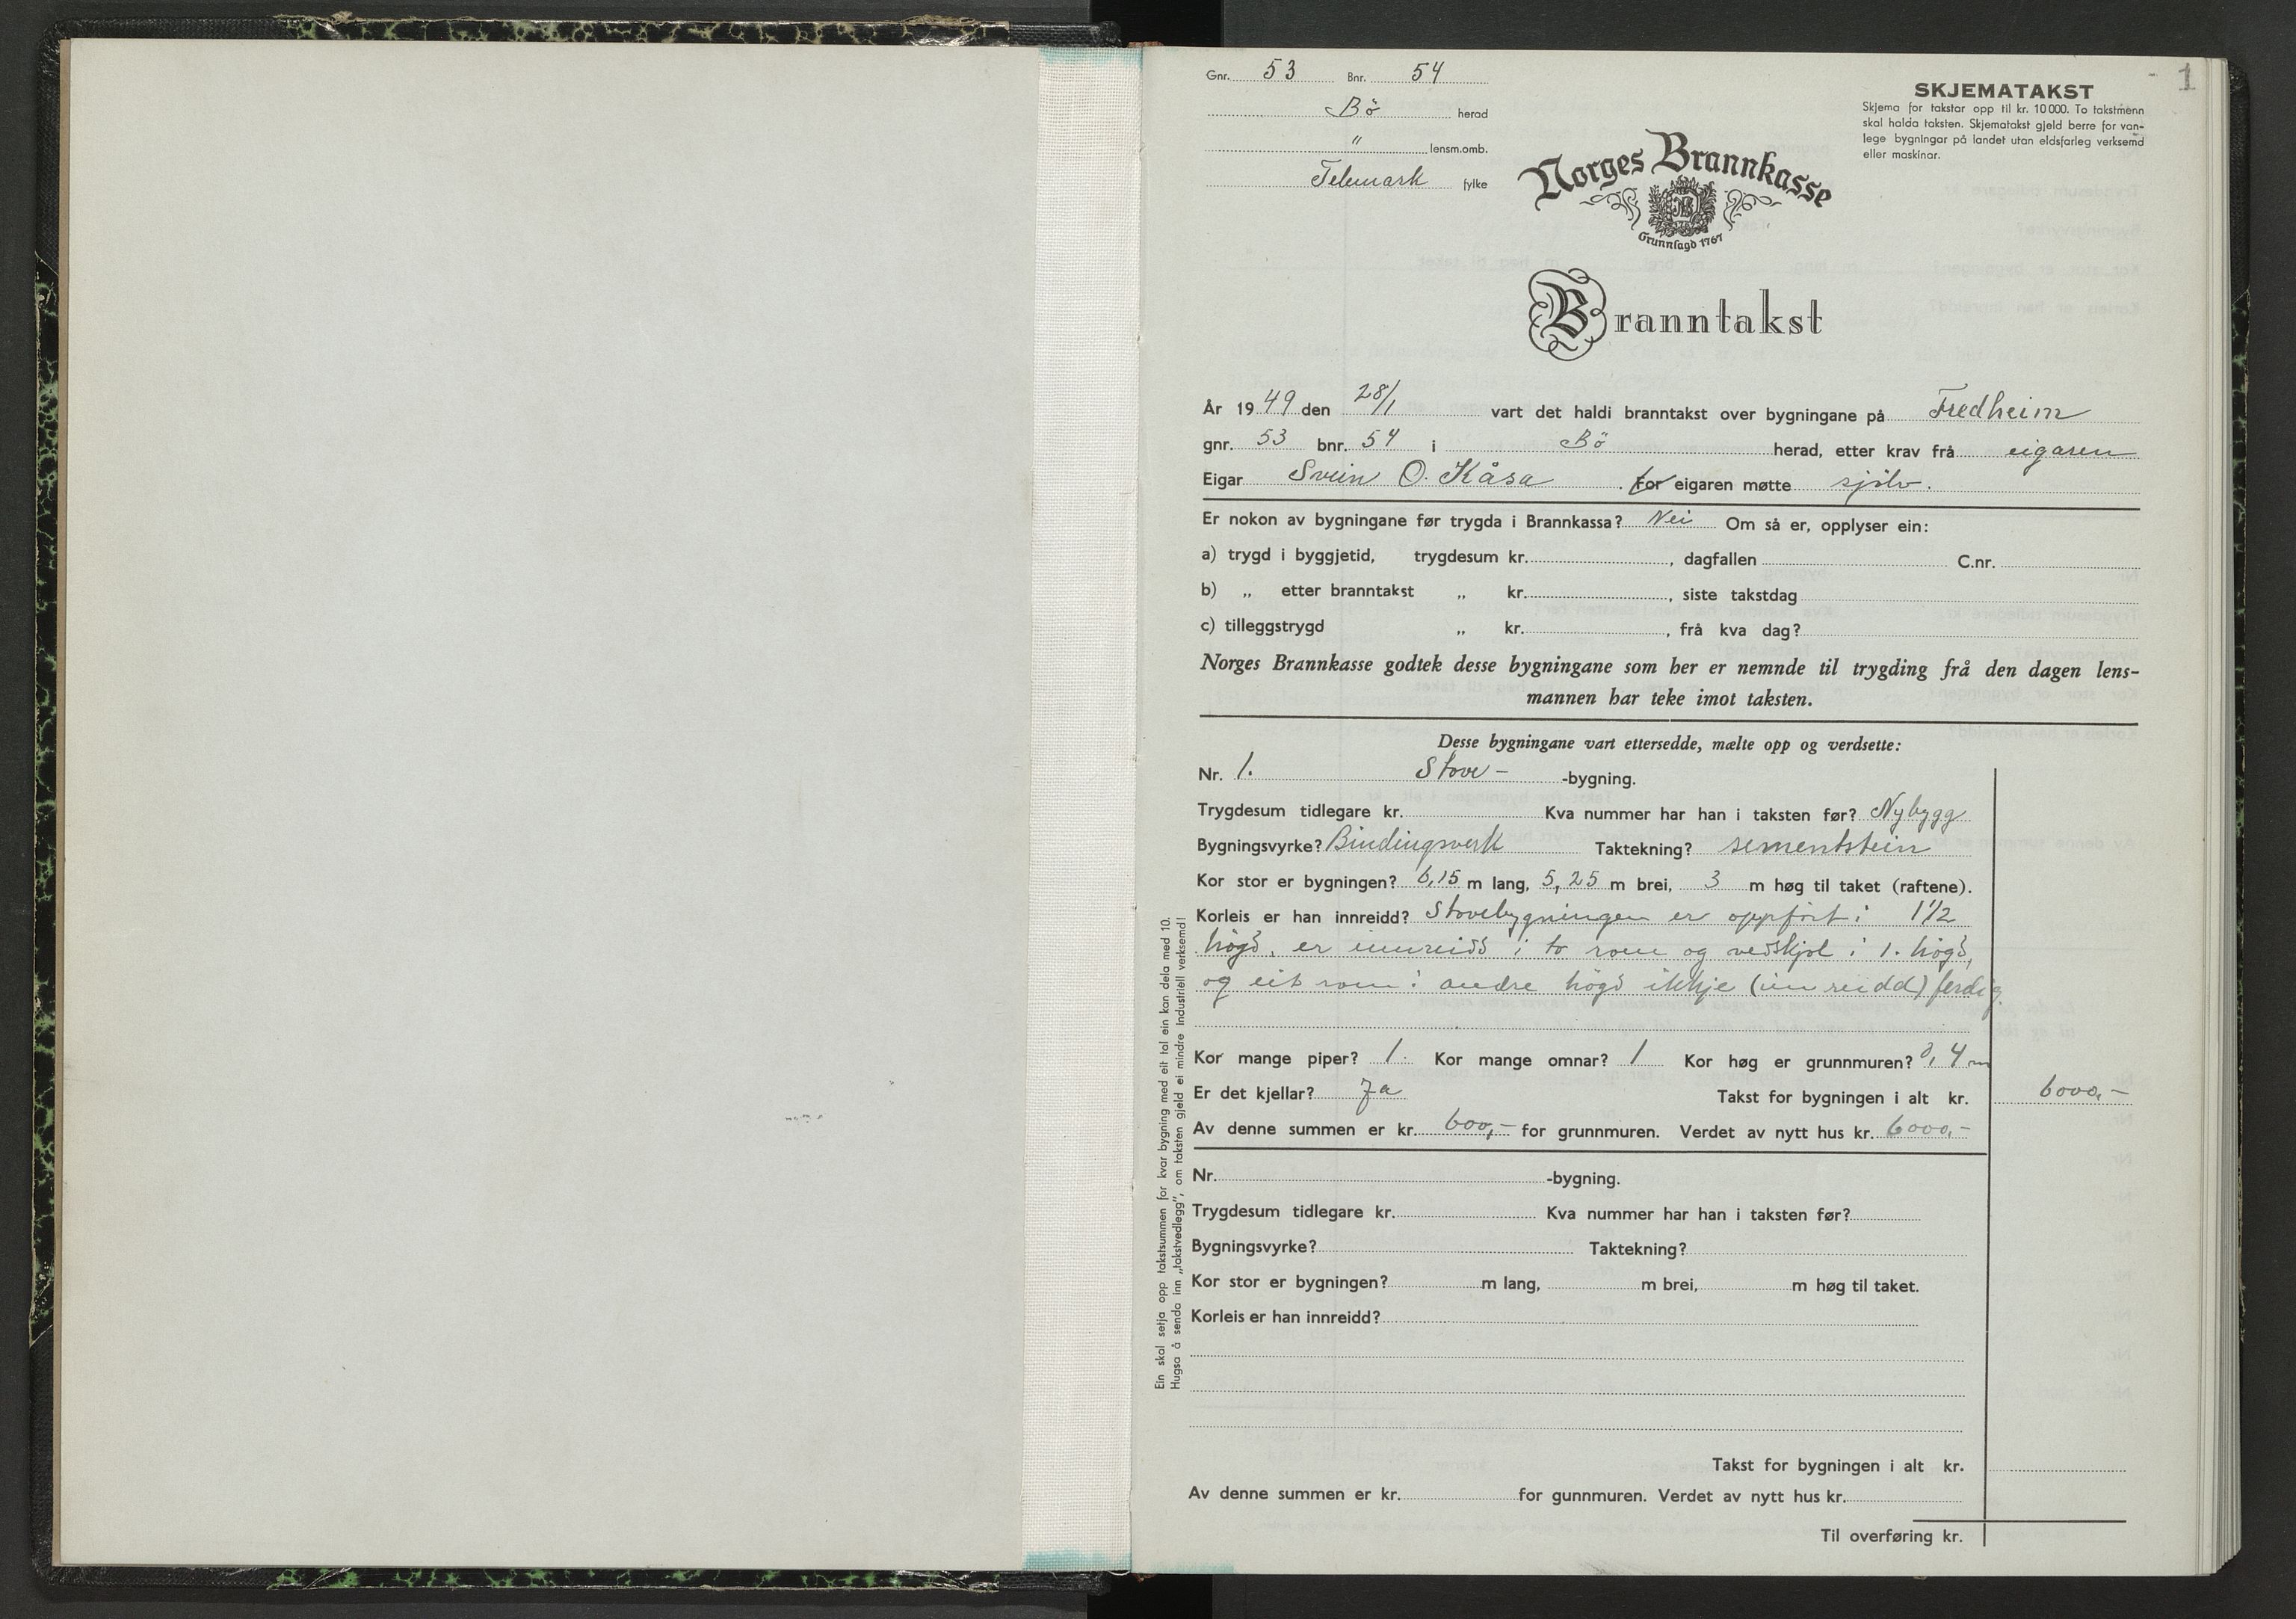 1
Gnr. 53 Bnr. 54
Bö herad
" lensm.omb.
Telemark fylke
SKJEMATAKST
Skjema for takstar opp til kr. 10 000. To takstmenn
skal halda taksten. Skjematakst gjeld berre for van-
lege bygningar på landet utan eldsfarleg verksemd
eller maskinar.
Norges Brannkasse
NB
Grunnlagd 1767
Branntakst
År 1949 den 28/1 vart det haldi branntakst over bygningane på Fredheim
gnr. 53 bnr. 54 i Bö herad, etter krav frå eigaren
Eigar Svein O. Kåsa . For eigaren møtte sjölv.
Er nokon av bygningane før trygda i Brannkassa? Nei Om så er, opplyser ein:
a) trygd i byggjetid, trygdesum kr. , dagfallen C.nr.
b) „ etter branntakst „ kr. , siste takstdag
c) tilleggstrygd „ kr. , frå kva dag?
Norges Brannkasse godtek desse bygningane som her er nemnde til trygding frå den dagen lens-
mannen har teke imot taksten.
Desse bygningane vart ettersedde, mælte opp og verdsette:
Nr. 1. Stove- -bygning.
Trygdesum tidlegare kr. Kva nummer har han i taksten før? Nybygg
Bygningsvyrke? Bindingsverk Taktekning? sementstein
Kor stor er bygningen? 6,15 m lang, 5,25 m brei, 3 m høg til taket (raftene).
Korleis er han innreidd? Stovebygningen er oppfört i 1 1/2
högd, er innreidd i to rom og vedskjol i 1. högd,
og eit rom i andre högd ikkje (innreidd) ferdig
Kor mange piper? 1. Kor mange omnar? 1 Kor høg er grunnmuren? 0,4 m
Er det kjellar? Ja Takst for bygningen i alt kr. 6000,-
Av denne summen er kr. 600,- for grunnmuren. Verdet av nytt hus kr. 6000,-
Nr. -bygning.
Trygdesum tidlegare kr. Kva nummer har han i taksten før?
Bygningsvyrke? Taktekning?
Kor stor er bygningen? m lang, m brei, m høg til taket.
Korleis er han innreidd?
Takst for bygningen i alt kr.
Av denne summen er kr. for gunnmuren. Verdet av nytt hus kr.
Til overføring kr.
Ein skal setja opp takstsummen for kvar bygning med eit tal ein kan dela med 10.
Hugsa å senda inn „takstvedlegg", om taksten gjeld ei mindre industriell verksemd!